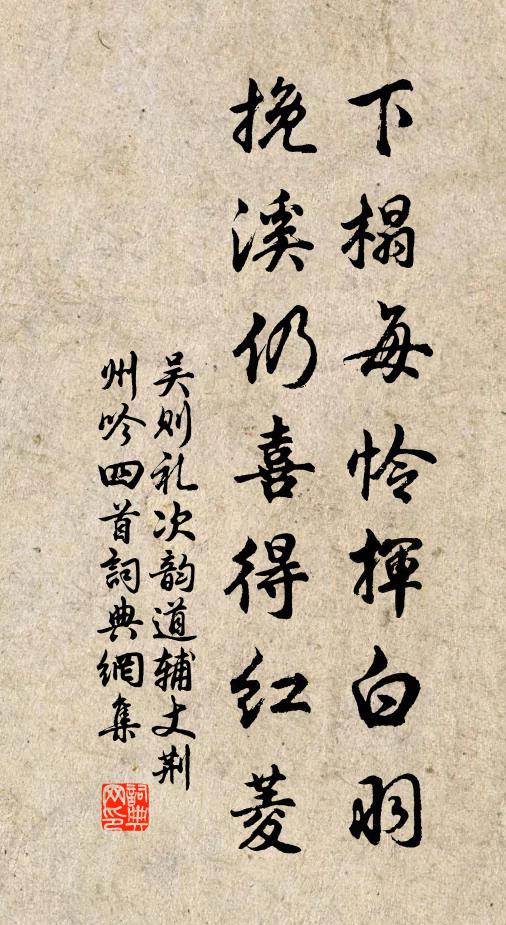 下榻每怜揮白羽
挽溪仍喜得红菱
吴则礼次韵道辅丈荆
州吟四首詞典網集
詞典
网印